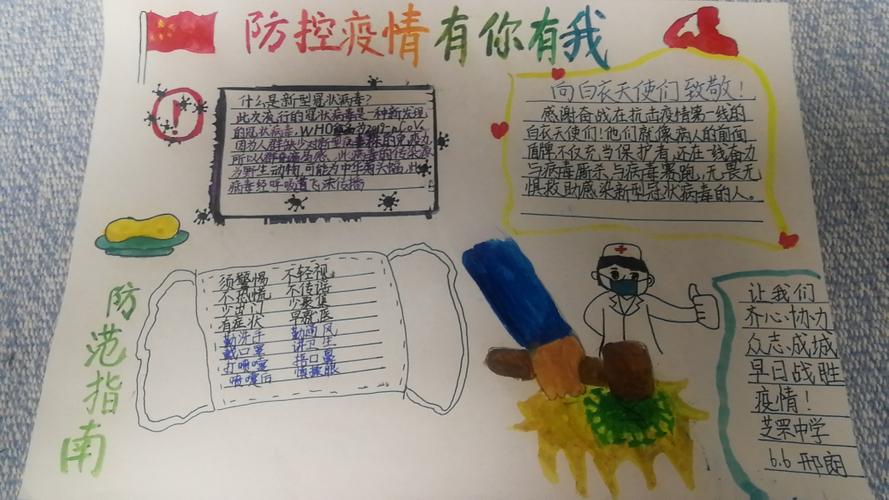 防控疫情有你有我
什么是新型冠状病毒?
此次流行的冠状病毒是一种新发现
的冠状病毒,WHO命名为2019-nCoV。
因为人群缺少对新型病毒株的免疫力
所以人群普遍易感,此病毒的传染源
为野生动物,可能为中华菊头蝠,此
病毒经呼吸道飞沫传播
向白衣天使们致敬!
感谢奋战在抗击疫情第一线的
白衣天使们!他们就像病人的前面
盾牌不仅充当保护者,还在一线奋力
与病毒厮杀,与病毒赛跑,无畏无
惧救助感染新型冠状病毒的人。
防范指南
须警惕 不轻视
不恐慌 不传谣
少出门 少聚集
有症状 早就医
勤洗手 勤通风
戴口罩 讲卫生
打喷嚏 捂口鼻
喷嚏后 慎揉眼
让我们
齐心协力
众志成城
早日战胜
疫情!
芝罘中学
6.6 邢朗